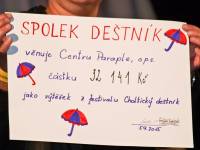 SPOLEK DEŠTNÍK
věnuje Centru Paraple, ops
částku 32 141 Kč
jako výtěžek z festivalu Chaltický deštník
5.9.2015